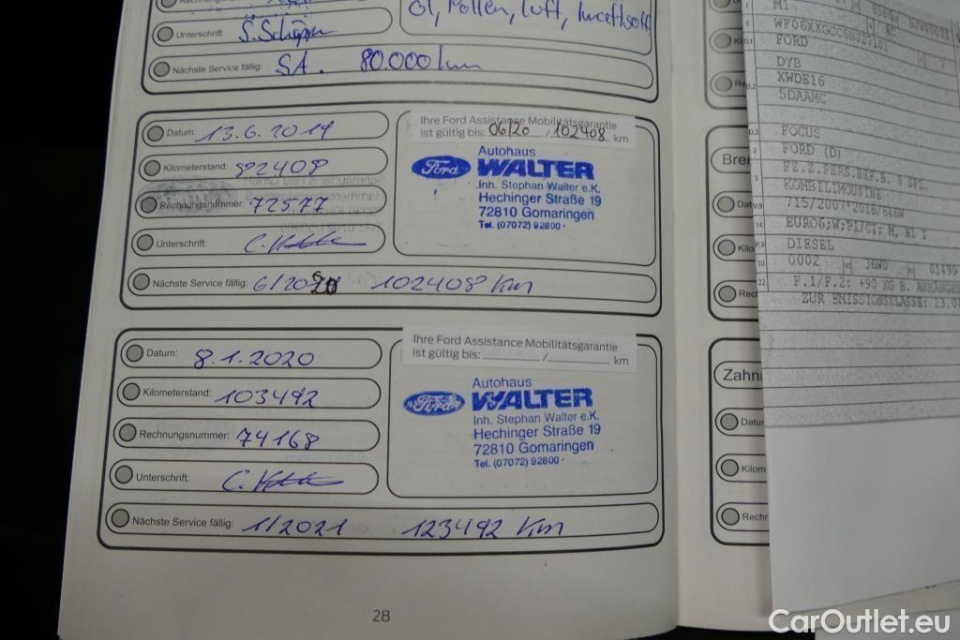 Öl, Pollen, Luft,
Unterschrift:
Nächste Service fällig: SA. 80.000 km
Datum: 13.6.2019
Kilometerstand: 82408
Rechnungsnummer: 72577
Unterschrift:
Nächste Service fällig: 6/2020 102408 Km
Ihre Ford Assistance Mobilitätsgarantie
ist gültig bis: 06/20 / 102408 km
Ford
Autohaus
WALTER
Inh. Stephan Walter e.K.
Hechinger Straße 19
72810 Gomaringen
Tel. (07072) 92800-
Datum: 8.1.2020
Kilometerstand: 103492
Rechnungsnummer: 74168
Unterschrift:
Nächste Service fällig: 1/2021 123492 Km
Ihre Ford Assistance Mobilitätsgarantie
ist gültig bis: / km
Ford
Autohaus
WALTER
Inh. Stephan Walter e.K.
Hechinger Straße 19
72810 Gomaringen
Tel. (07072) 92800-
28
Bre
Datu
Kilo
Rech
Zahn
Datu
Kilom
Rechr
M1 AC
FORD
DYB
XWDE16
5DAAMC
FOCUS
FORD (D)
FZ.Z.PERS.BEF.B. 8 SPL.
KOMBILIMOUSINE
715/2007*2016/646W
EURO6;W;PI/CI; M, N1 I
DIESEL
0002 36W0 01499
F.1/F.2: +90 KG B. ANHÄNGE
ZUR EMISSIONSKLASSE: 13.0
CarOutlet.eu